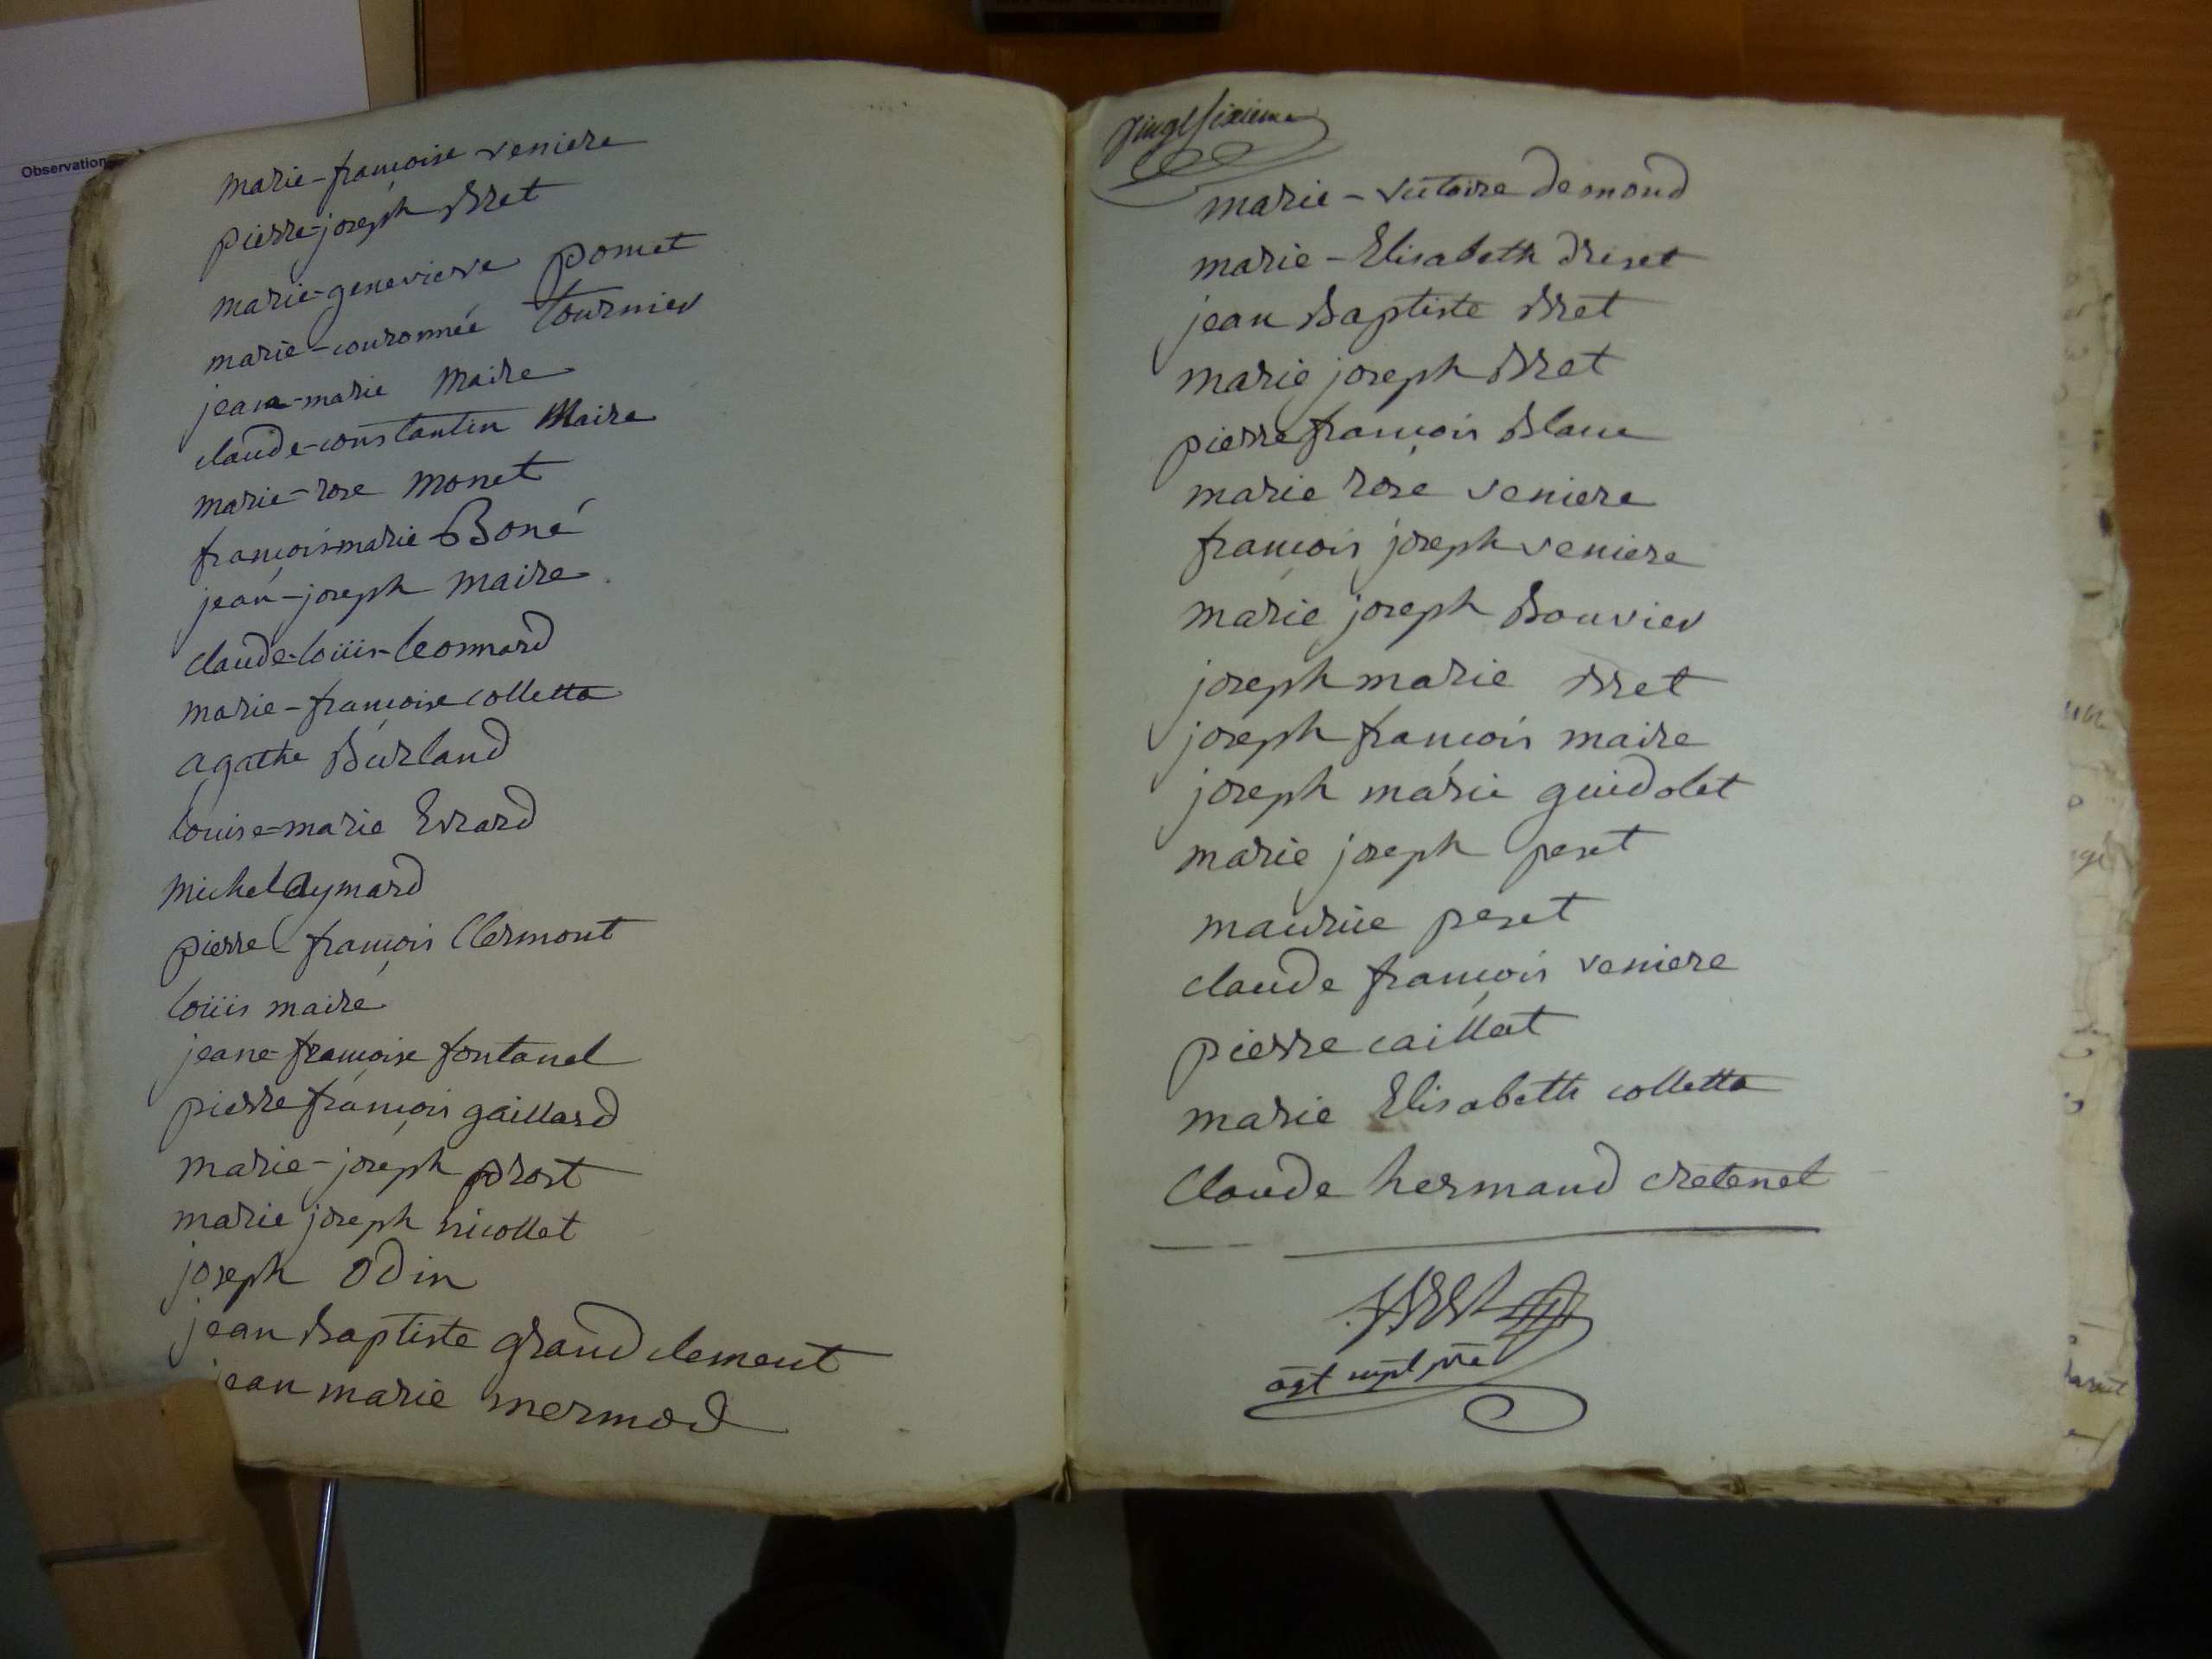 Observation
marie-françoise veniere
pierre-joseph Bret
marie-genevieve pomet
marie-couronnée tournier
jeana-marie Maire
claude-constantin Maire
marie-rose monet
françois-marie Boné
jean-joseph maire
claude-loüis-leonnard
marie-françoise colletta
agathe Burland
louise-marie Evrard
michel aymard
pierre françois Clermont
loüis maire
jeane-françoise fontanel
pierre françois gaillard
marie-joseph prost
marie joseph nicollet
joseph Odin
jean Baptiste grand clement
jean marie mermod
vingt sixieme
marie-victoire demond
marie-Elisabeth
jean Baptiste Bret
marie joseph Bret
pierre françois Blanc
marie rose veniere
françois joseph veniere
marie joseph Bouvier
joseph marie Bret
joseph françois maire
joseph marie guidolet
marie joseph peset
maurice peset
claude françois veniere
pierre caillat
marie Elisabeth colletta
Claude hermand cretenet